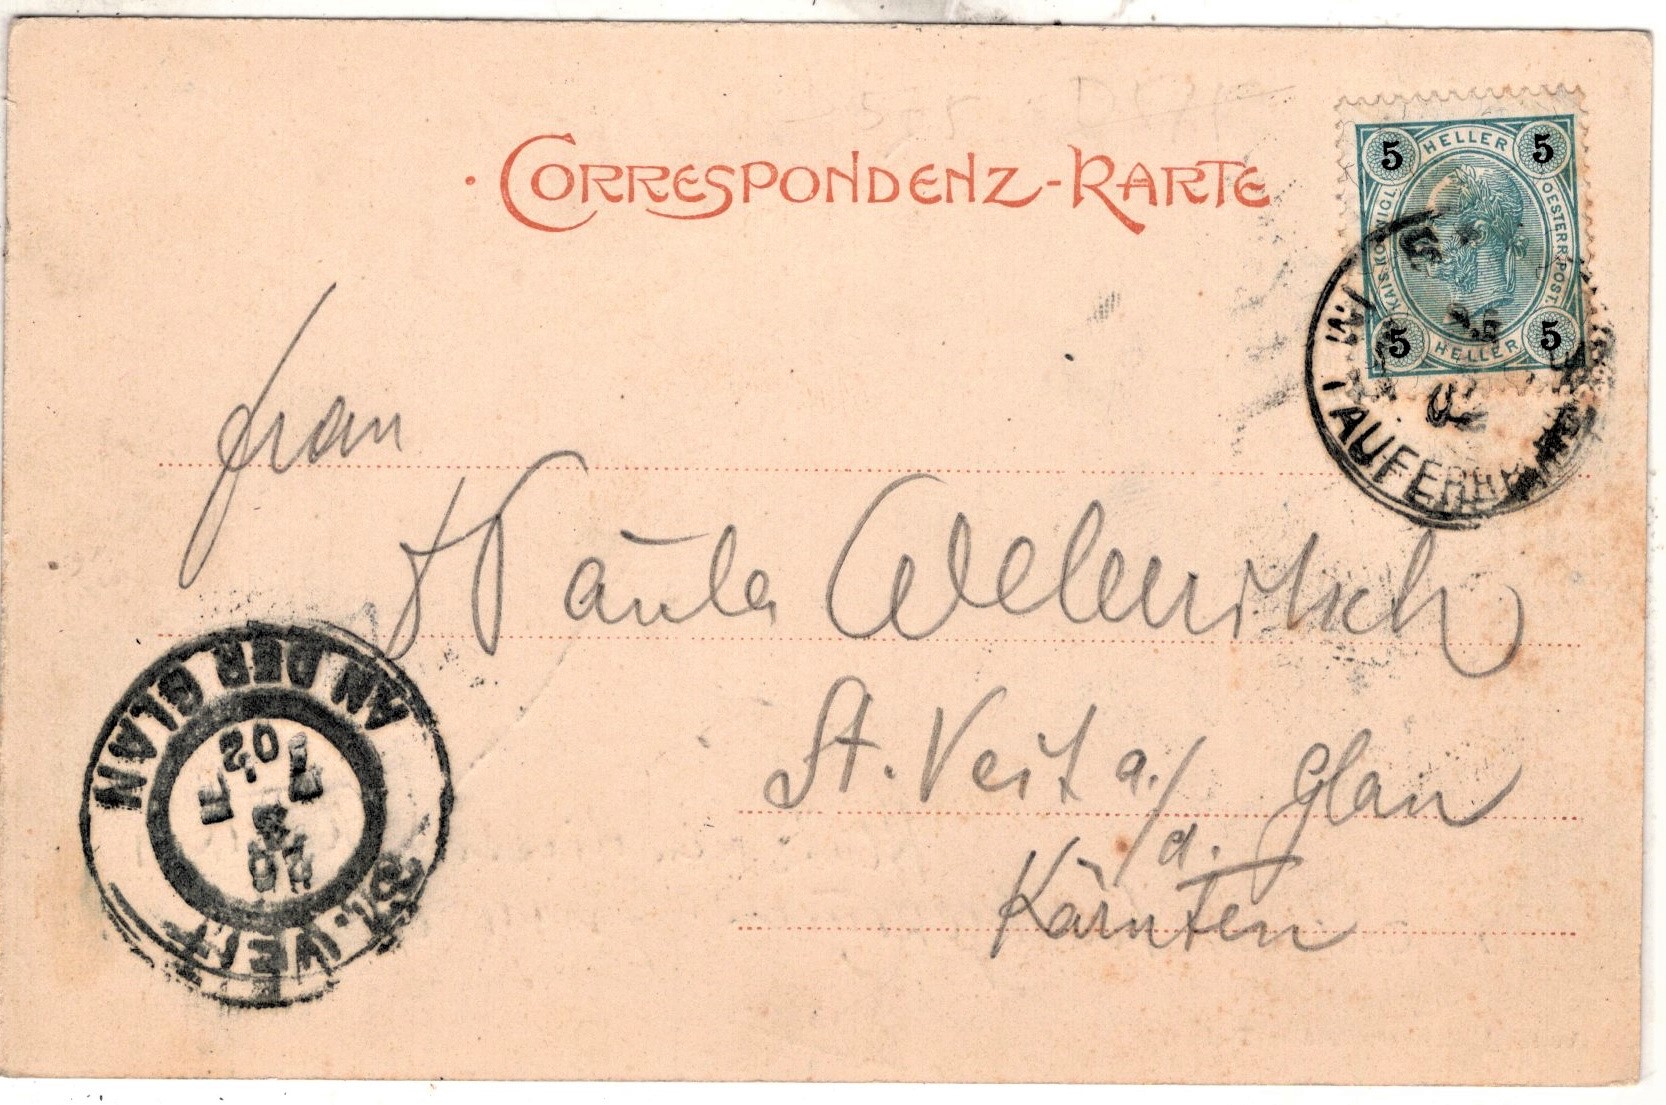 CORRESPONDENZ-KARTE
5 HELLER 5
KAIS. KÖNIGL. OESTERR. POST.
5 HELLER 5
02
IM TAUFER
Frau
Paula
St. Veit a./
d. Glan
Kärnten
ST. VEIT AN DER GLAN
02